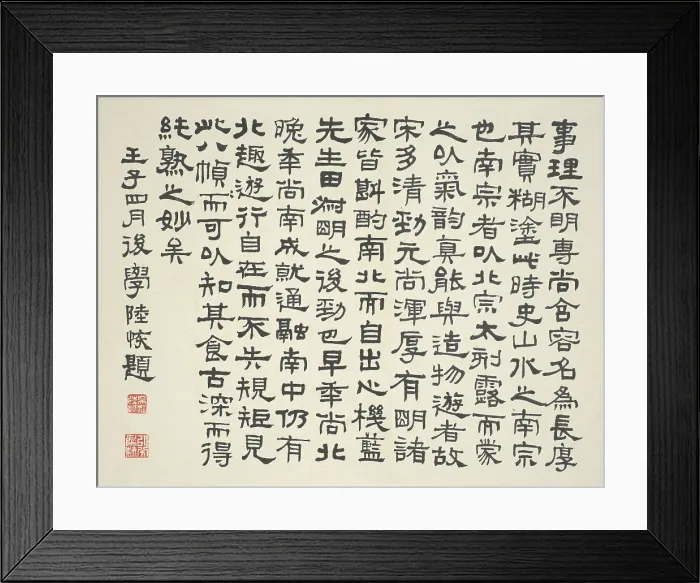 事理不明專尚含容名為長厚
其實糊塗此時史山水之南宗
也南宗者以北宗太刻露而蒙
之以氣韵真能與造物遊者故
宋多清勁元尚渾厚有明諸
家皆斟酌南北而自出心機藍
先生田尗明之後勁也早年尚北
晚年尚南成就通融南中仍有
北趣遊行自在而不失規矩見
此八幀而可以知其食古深而得
純熟之妙矣
壬子四月後學陸恢題